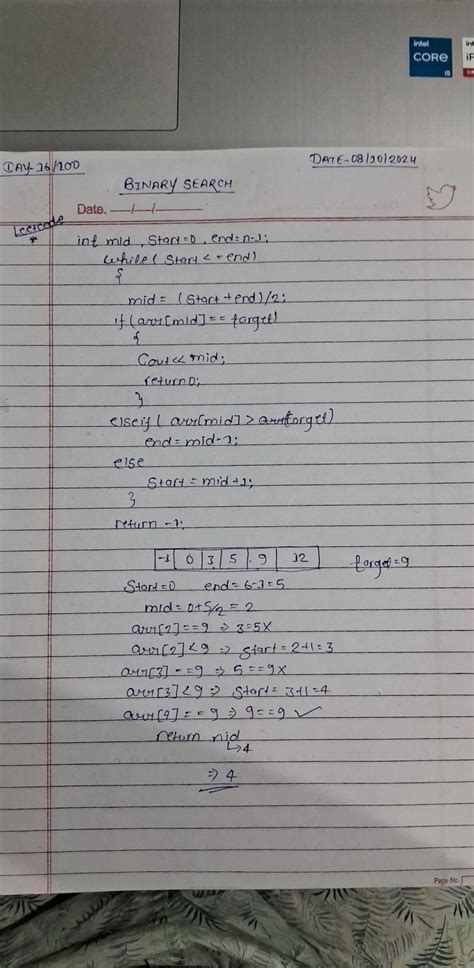 intel
CORE
i5
DAY-16/100
DATE-08/10/2024
BINARY SEARCH
Date. —/—/—
Leetcode
*
int mid, Start=0, end=n-1;
while( Start <= end)
{
mid = (Start + end)/2;
if (arr[mid] == target)
{
Cout << mid;
return 0;
}
elseif( arr[mid] > target)
end = mid-1;
else
Start = mid+1;
}
return -1;
-1 0 3 5 9 12 target=9
Start=0 end= 6-1=5
mid= 0+5/2 = 2
arr[2]==9 ⇒ 3=5X
arr[2]<9 ⇒ Start = 2+1=3
arr[3]==9 ⇒ 5==9X
arr[3]<9 ⇒ Start= 3+1=4
arr[4]==9 ⇒ 9==9 ✓
return mid
↳4
⇒ 4
Page No.